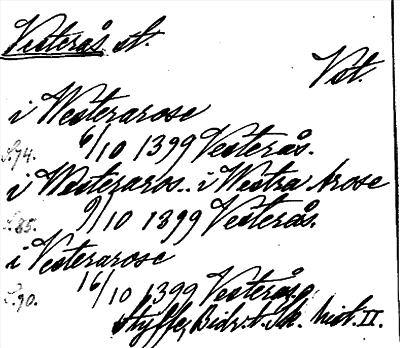 Västerås st.
Vst.
i Westerarose
S.74. 6/10 1399 Västerås.
i Westeraros.. i Westra Arose
S.85. 9/10 1399 Västerås.
i Vesterarose
S.90. 16/10 1399 Västerås.
Styffe, Bidr. t. Sk. hist. II.